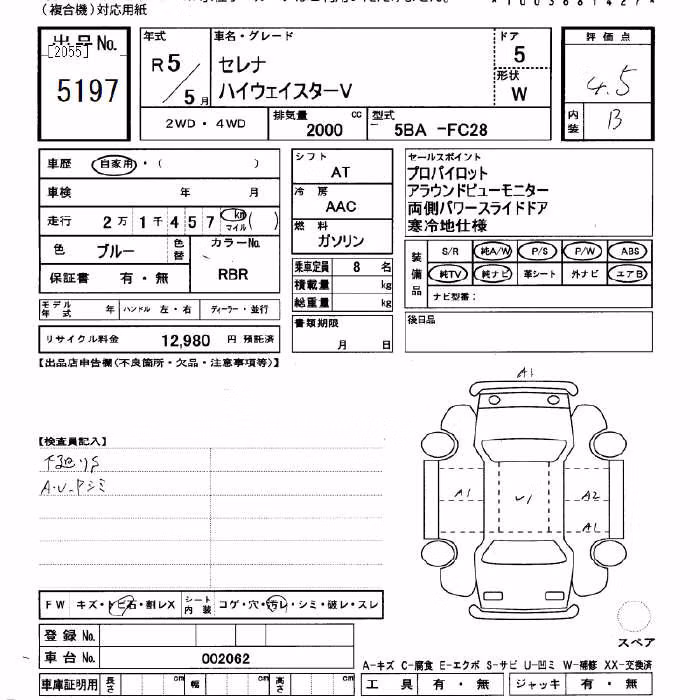 （複合機）対応用紙
*1003681427*
出品No. [2055] 5197
年式 R5/5月
車名・グレード セレナ ハイウェイスターV
ドア 5
形状 W
評価点 4.5
内装 B
2WD・4WD 排気量 2000 cc 型式 5BA -FC28
車歴 自家用・（ ）
車検 年 月
走行 2万1千457 km マイル ( )
色 ブルー 色替 カラーNo. RBR
保証書 有・無
モデル年式 年 ハンドル 左・右 ディーラー・並行
リサイクル料金 12,980 円 預託済
シフト AT
冷房 AAC
燃料 ガソリン
乗車定員 8 名
積載量 kg
総重量 kg
書類期限 月 日
セールスポイント
プロパイロット
アラウンドビューモニター
両側パワースライドドア
寒冷地仕様
装備品 S/R 純A/W P/S P/W ABS
純TV 純ナビ 革シート 外ナビ エアB
ナビ型番：
後日品
【出品店申告欄(不良箇所・欠品・注意事項等)】
【検査員記入】
A・U
A1
A1 U1 A2
A1
スペア
FW キズ・トビ石・割レX シート内装 コゲ・穴・汚レ・シミ・破レ・スレ
登録No.
車台No. 002062
車庫証明用 長さ cm 幅 cm 高さ cm
A-キズ C-腐食 E-エクボ S-サビ U-凹ミ W-補修 XX-交換済
工具 有・無 ジャッキ 有・無